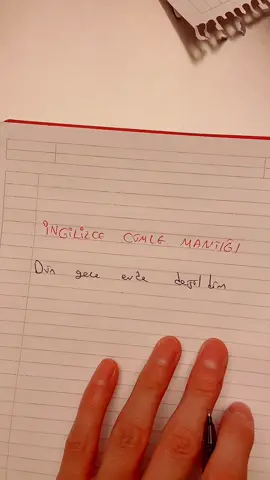 İNGİLİZCE CÜMLE MANTIĞI
Dün gece evde değildim